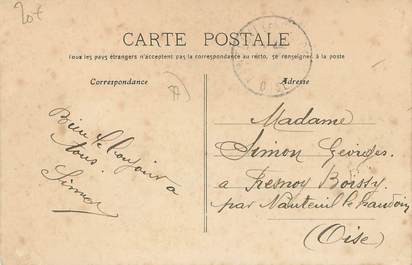 20€
CARTE POSTALE
Tous les pays étrangers n'acceptent pas la correspondance au recto, se renseigner à la poste
Correspondance
Adresse
Bien le bonjour a
tous.
Simon
Madame
Simon Georges.
a Fresnoy Boissy.
par Nanteuil le haudoin
(Oise)